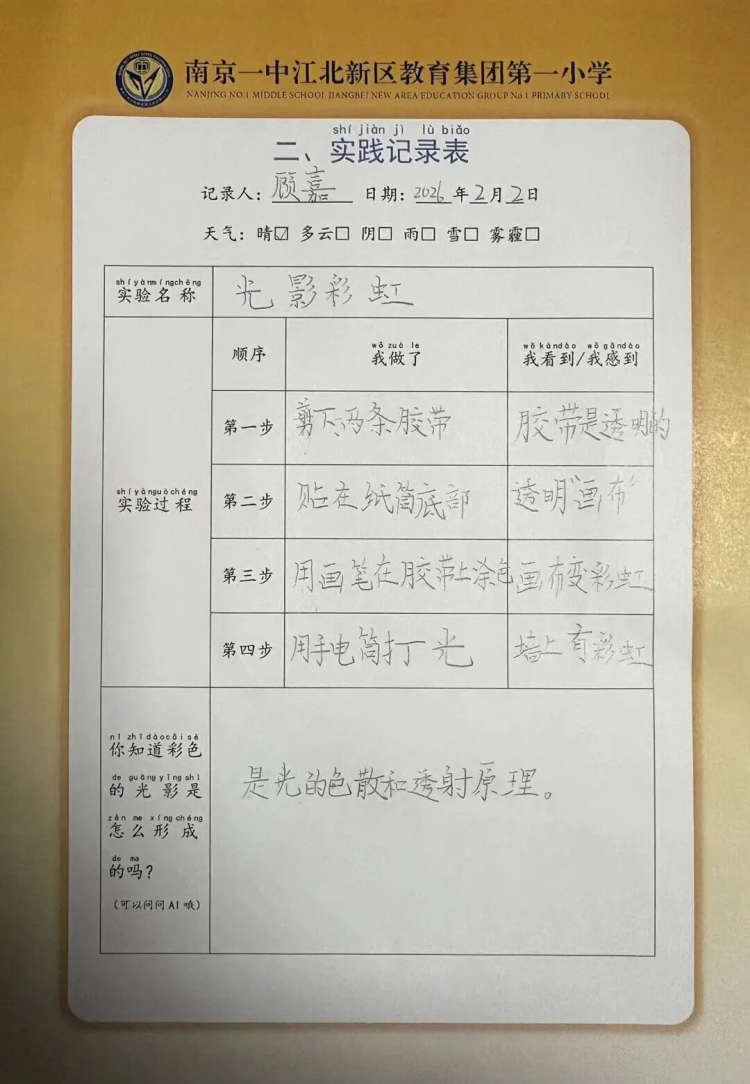 南京一中江北新区教育集团第一小学
NANJING NO.1 MIDDLE SCHOOL JIANGBEI NEW AREA EDUCATION GROUP No.1 PRIMARY SCHOOL
shí jiàn jì lù biǎo
二、实践记录表
记录人：顾嘉 日期：2026年2月2日
天气：晴☑ 多云□ 阴□ 雨□ 雪□ 雾霾□
shíyànmíngchēng
实验名称 光影彩虹
wǒ zuò le
wǒ kàndào wǒ gǎndào
顺序 我做了 我看到/我感到
第一步 剪下两条胶带 胶带是透明的
shíyànguòchéng
实验过程
第二步 贴在纸筒底部 透明"画布"
第三步 用画笔在胶带上涂色 画布变彩虹
第四步 用手电筒打光 墙上有彩虹
nǐ zhīdàocǎisè
你知道彩色
de guāngyǐngshì
的光影是
zěn me xíngchéng
怎么形成
de ma
的吗？
（可以问问AI哦）
是光的色散和透射原理。